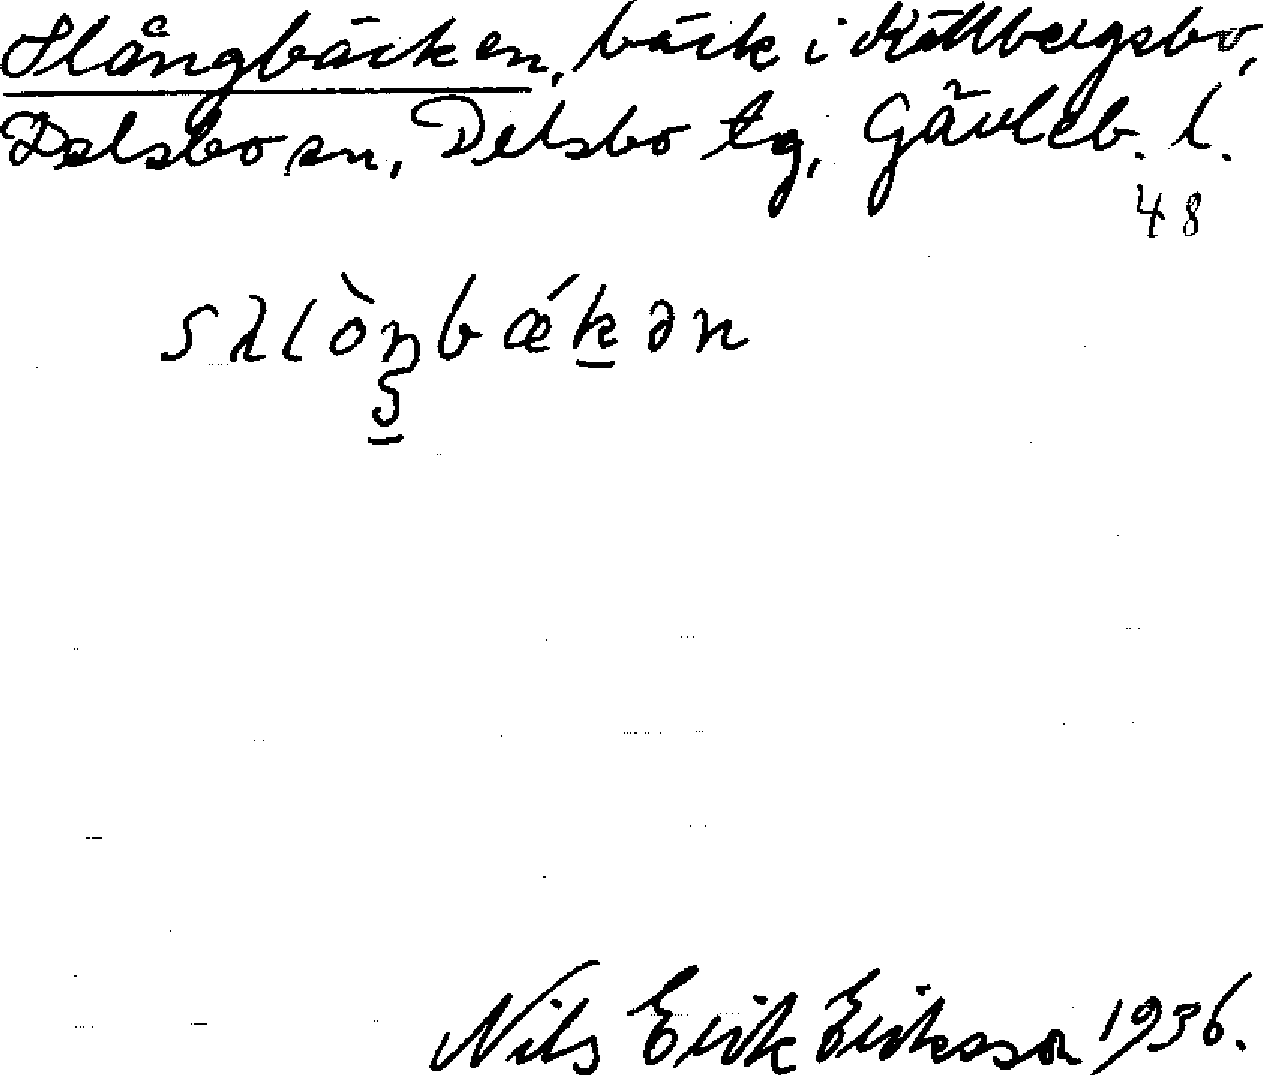 Slångbäcken, bäck i Källbergsbo,
Delsbo sn, Delsbo tg, Gävleb. l.
48
Nils Erik Eriksson 1936.